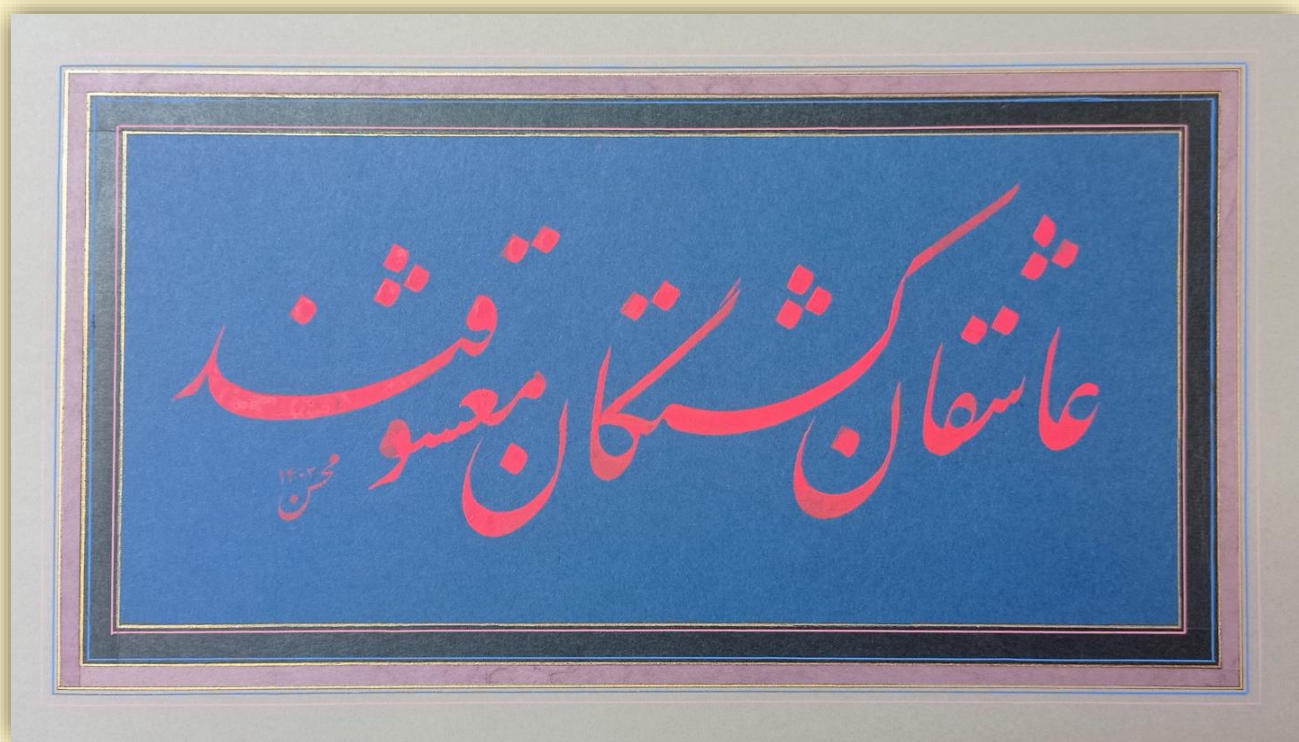 عاشقان کشتگان معشوقند
محسن ۱۴۰۲